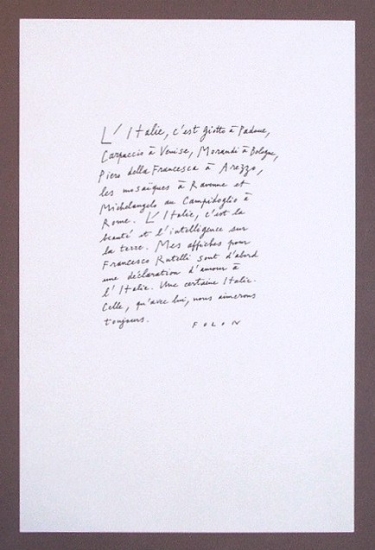 L'Italie, c'est Giotto à Padoue,
Carpaccio à Venise, Morandi à Bologne,
Piero della Francesca à Arezzo,
les mosaïques à Ravenne et
Michelangelo au Campidoglio à
Rome. L'Italie, c'est la
beauté et l'intelligence sur
la terre. Mes affiches pour
Francesco Rutelli sont d'abord
une déclaration d'amour à
l'Italie. Une certaine Italie.
Celle, qu'avec lui, nous aimerons
toujours.
FOLON